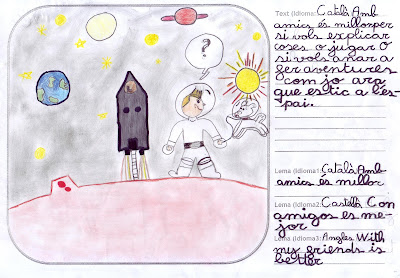 ?
Text (Idioma: Català Amb
amics és millorper
si vols explicar
coses o jugar O
si vols anar a
fer aventures
com jo ara
que estic a l'es-
pai.
Lema (Idioma1: Català Amb
amics és millor
Lema (Idioma2: Castellà Con
amigos es me-
jor
Lema (Idioma3: Angles With
my friends is
better